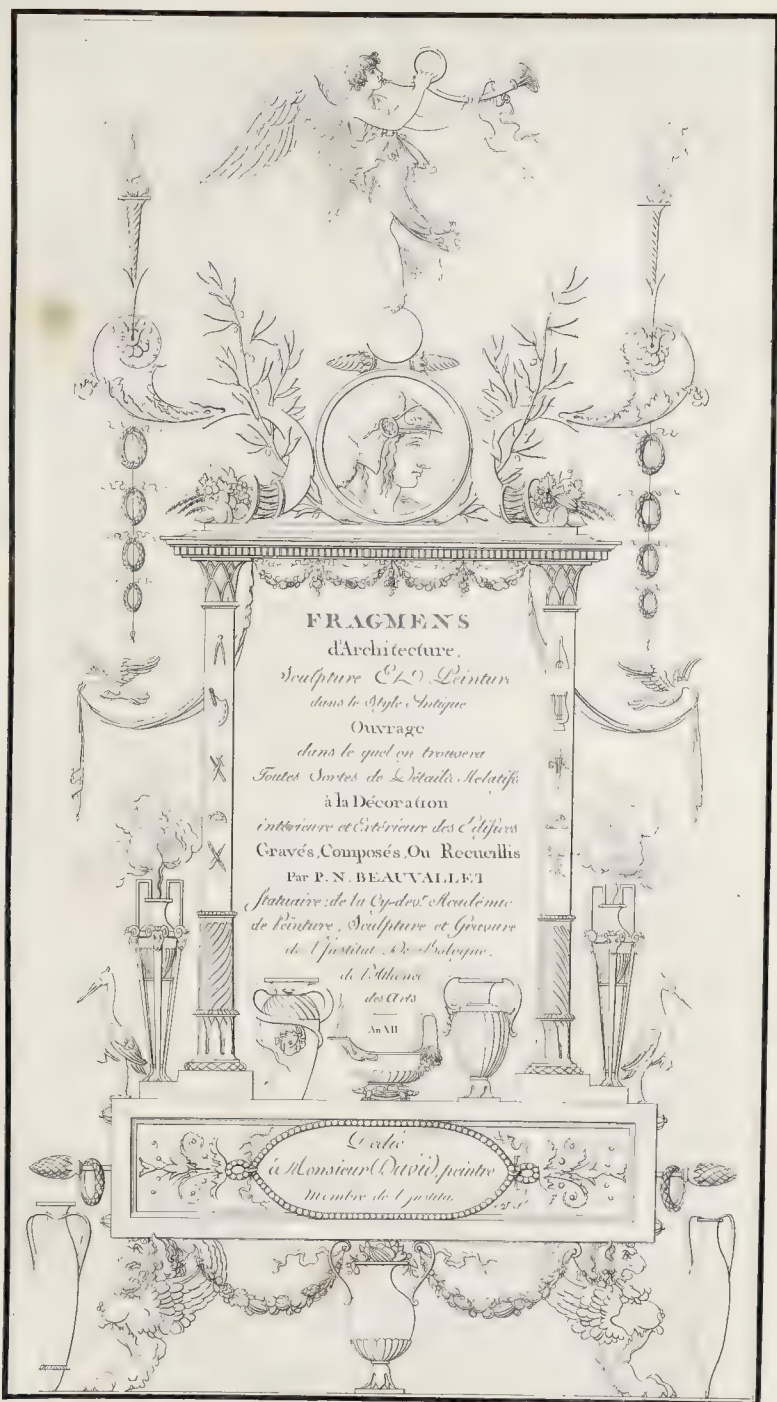 FRAGMENS
d'Architecture,
Sculpture Et Peinture
dans le Style Antique
Ouvrage
dans le quel on trouvera
Toutes Sortes de Détails Relatifs
à la Décoration
intérieure et Extérieure des Edifices
Gravés, Composés, Ou Recueillis
Par P. N. BEAUVALLET
Statuaire; de la Cy-devt. Académie
de Peinture, Sculpture et Gravure
de l'Institut De Bologne,
de l'Athenée
des Arts
An XII
Dédié
à Monsieur David, peintre
Membre de l'Institut